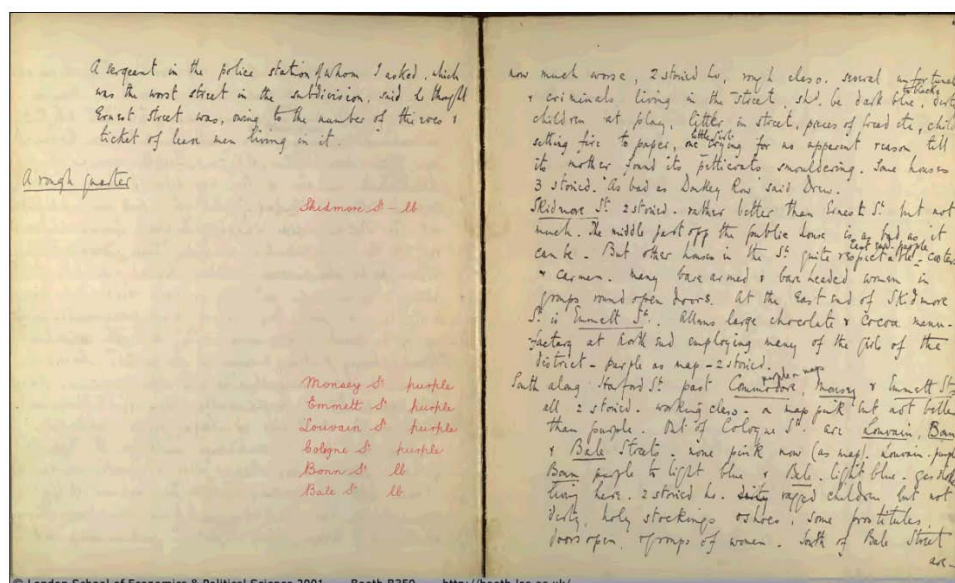 A sergeant in the police station of whom I asked, which
was the worst street in the subdivision, said he thought
Ernest Street was, owing to the number of thieves &
ticket of leave men living in it.
A rough quarter
Skidmore St - lb
Monsey St purple
Emmett St purple
Louvain St purple
Cologne St purple
Bonn St lb
Bale St lb
now much worse, 2 storied ho, rough class. several unfortunates
& criminals living in the street, shd. be dark blue, dirty
children at play, litter in street, pieces of bread etc, child
setting fire to paper, one little girl crying for no apparent reason till
its mother found its petticoats smouldering. Some houses
3 storied. "As bad as Donkey Row" said Drew.
Skidmore St. 2 storied. rather better than Ernest St. but not
much. The middle part off the public house is as bad as it
can be. But other houses in the St. quite respectable - east end. purple costers
& carmen. many bare armed & bare headed women in
groups round open doors. At the East end of Skidmore
St is Emmett St. Allens large chocolate & cocoa manu-
-factory at North end employing many of the girls of the
district - purple as map - 2 storied.
South along Stafford St. past Commodore, purple in map Monsey & Emmett Sts
all 2 storied. working class - a map pink but not better
than purple. Out of Cologne St. are Louvain, Bonn
& Bale Streets. none pink now (as map). Louvain. purple
Bonn purple to light blue & Bale. light blue - gas stokers
living here. 2 storied ho. dirty ragged children but not
dirty, holy stockings & shoes. some prostitutes.
doors open, & groups of women. South of Bale Street
are -
© London School of Economics & Political Science 2001 Booth B350 http://booth.lse.ac.uk/